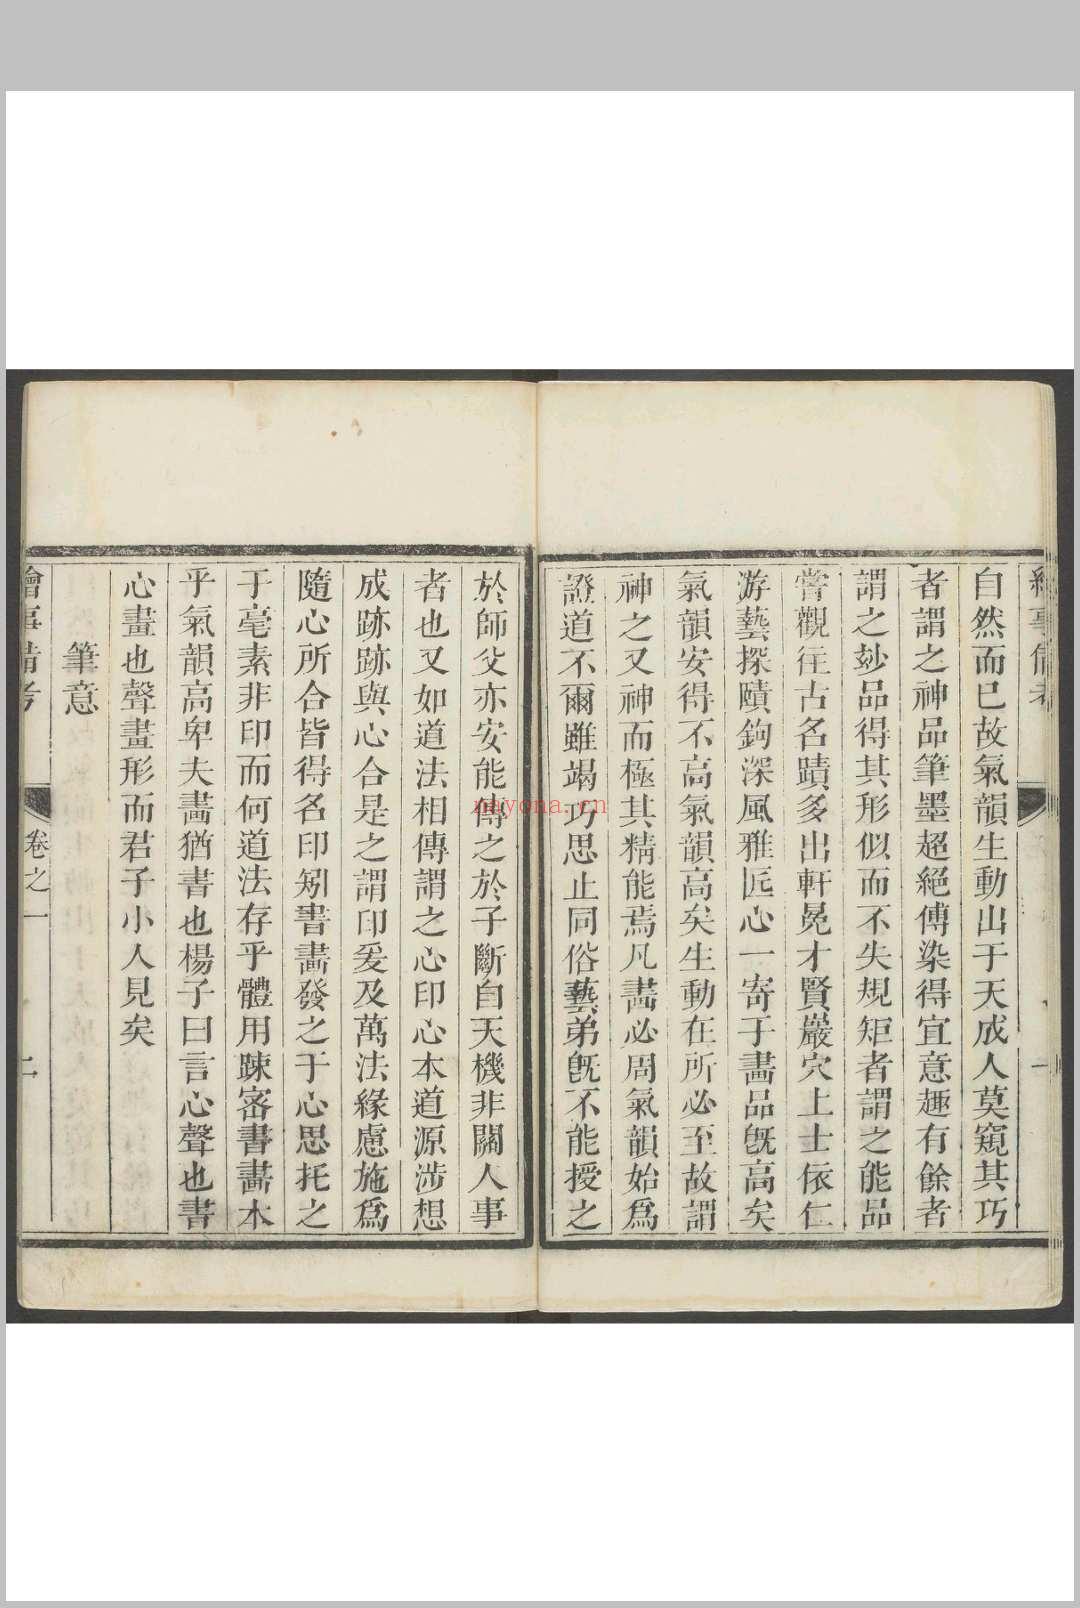 繪事備考
一
自然而已故氣韻生動出于天成人莫窺其巧
者謂之神品筆墨超絕傅染得宜意趣有餘者
謂之玅品得其形似而不失規矩者謂之能品
嘗觀往古名蹟多出軒冕才賢巖穴上士依仁
游藝探賾鉤深風雅匠心一寄于畵品旣高矣
氣韻安得不高氣韻高矣生動在所必至故謂
神之又神而極其精能焉凡畵必周氣韻始爲
證道不爾雖竭巧思止同俗藝弟旣不能授之
於師父亦安能傳之於子斷自天機非關人事
者也又如道法相傳謂之心印心本道源涉想
成跡跡與心合是之謂印爰及萬法緣慮施爲
隨心所合皆得名印矧書畵發之于心思托之
于毫素非印而何道法存乎體用踈密書畵本
乎氣韻高卑夫畵猶書也楊子曰言心聲也書
心畫也聲畫形而君子小人見矣
筆意
繪事備考
卷之一
二
nayona.cn